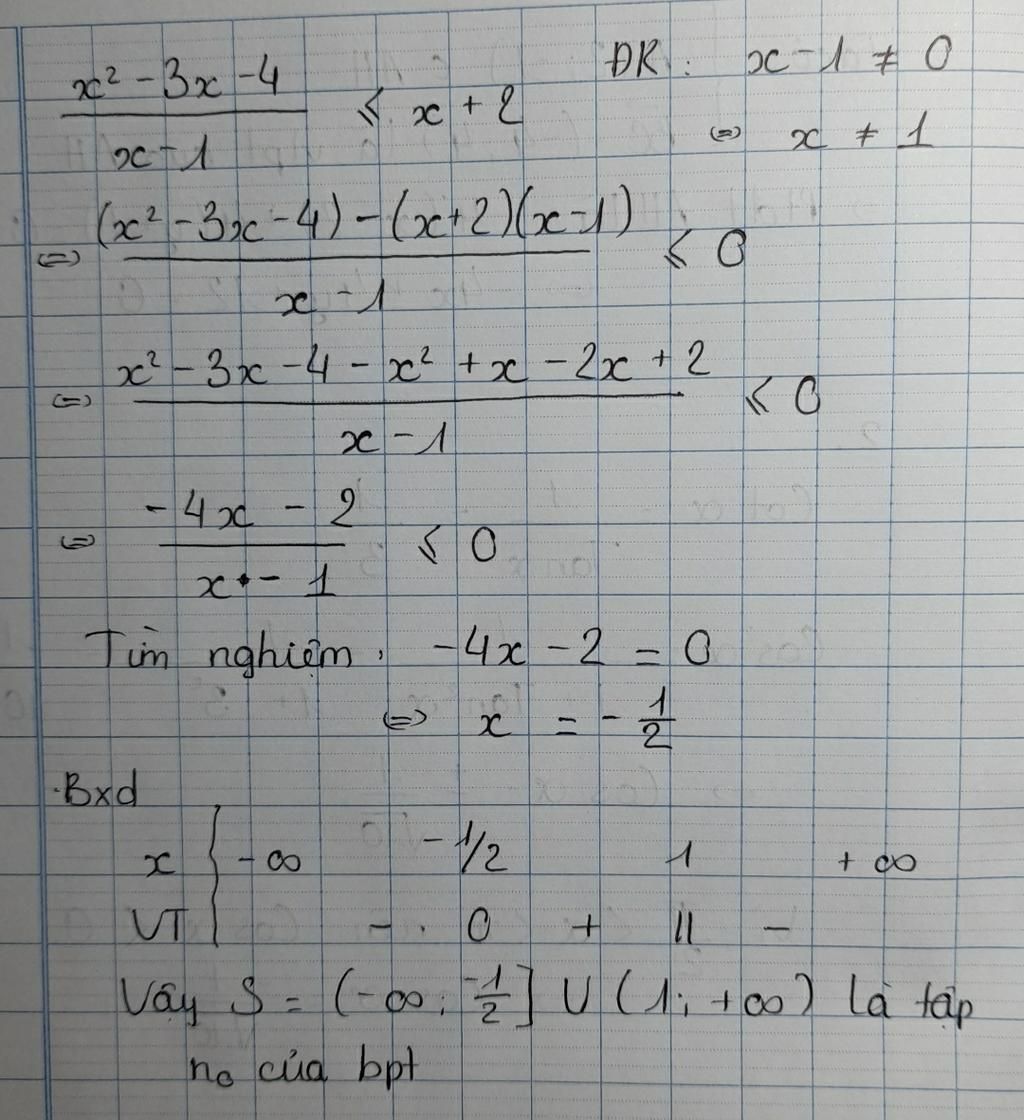 (x² - 3x - 4)/(x - 1) ⩽ x + 2 ĐK: x - 1 ≠ 0
⇔ x ≠ 1
⇔ ((x² - 3x - 4) - (x+2)(x-1))/(x - 1) ⩽ 0
⇔ (x² - 3x - 4 - x² + x - 2x + 2)/(x - 1) ⩽ 0
⇔ (-4x - 2)/(x - 1) ⩽ 0
Tìm nghiệm. -4x - 2 = 0
⇔ x = -1/2
Bxd
x -∞ -1/2 1 +∞
VT - 0 + || -
Vậy S = (-∞; -1/2] ∪ (1; +∞) là tập
no của bpt